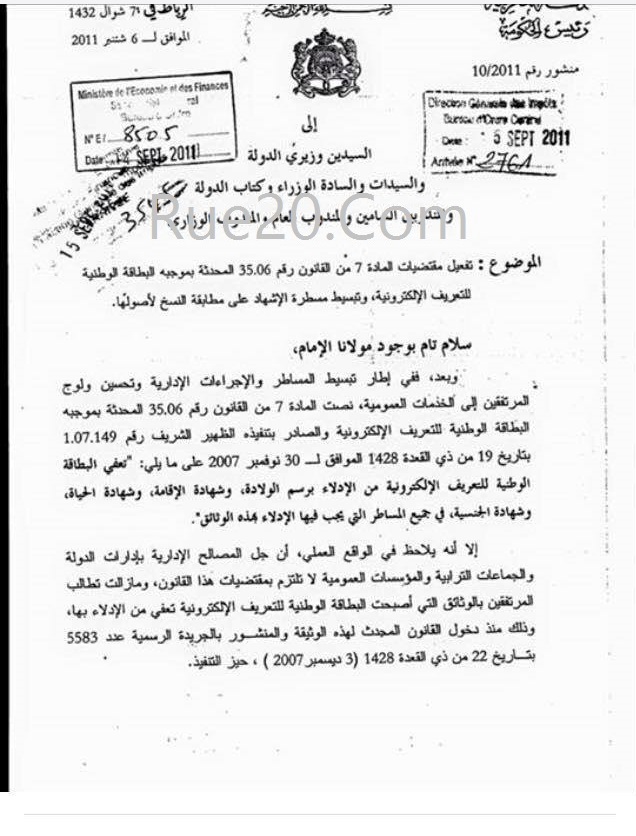 الرباط في 7 شوال 1432
الموافق لـــ 6 شتنبر 2011
رئيس الحكومة
منشور رقم 10/2011
Ministère de l'Economie et des Finances
N° E/ 8505
Date SEPT 2011
Direction Générale des Impôts
Bureau d'Ordre Central
Date: 5 SEPT 2011
Arrivée N° 2761
15 SEPT
إلى
السيدين وزيري الدولة
والسيدات والسادة الوزراء وكتاب الدولة
والمندوبين السامين والمندوب العام والمندوب الوزاري
Rue20.Com
الموضوع : تفعيل مقتضيات المادة 7 من القانون رقم 35.06 المحدثة بموجبه البطاقة الوطنية
للتعريف الإلكترونية، وتبسيط مسطرة الإشهاد على مطابقة النسخ لأصولها.
سلام تام بوجود مولانا الإمام،
وبعد، ففي إطار تبسيط المساطر والإجراءات الإدارية وتحسين ولوج
المرتفقين إلى الخدمات العمومية، نصت المادة 7 من القانون رقم 35.06 المحدثة بموجبه
البطاقة الوطنية للتعريف الإلكترونية والصادر بتنفيذه الظهير الشريف رقم 1.07.149
بتاريخ 19 من ذي القعدة 1428 الموافق لـــ 30 نوفمبر 2007 على ما يلي: "تعفي البطاقة
الوطنية للتعريف الإلكترونية من الإدلاء برسم الولادة، وشهادة الإقامة، وشهادة الحياة،
وشهادة الجنسية، في جميع المساطر التي يجب فيها الإدلاء بهذه الوثائق".
إلا أنه يلاحظ في الواقع العملي، أن جل المصالح الإدارية بإدارات الدولة
والجماعات الترابية والمؤسسات العمومية لا تلتزم بمقتضيات هذا القانون، ومازالت تطالب
المرتفقين بالوثائق التي أصبحت البطاقة الوطنية للتعريف الإلكترونية تعفي من الإدلاء بها،
وذلك منذ دخول القانون المحدث لهذه الوثيقة والمنشور بالجريدة الرسمية عدد 5583
بتـــاريخ 22 من ذي القعدة 1428 (3 ديسمبر 2007 ) ، حيز التنفيذ.